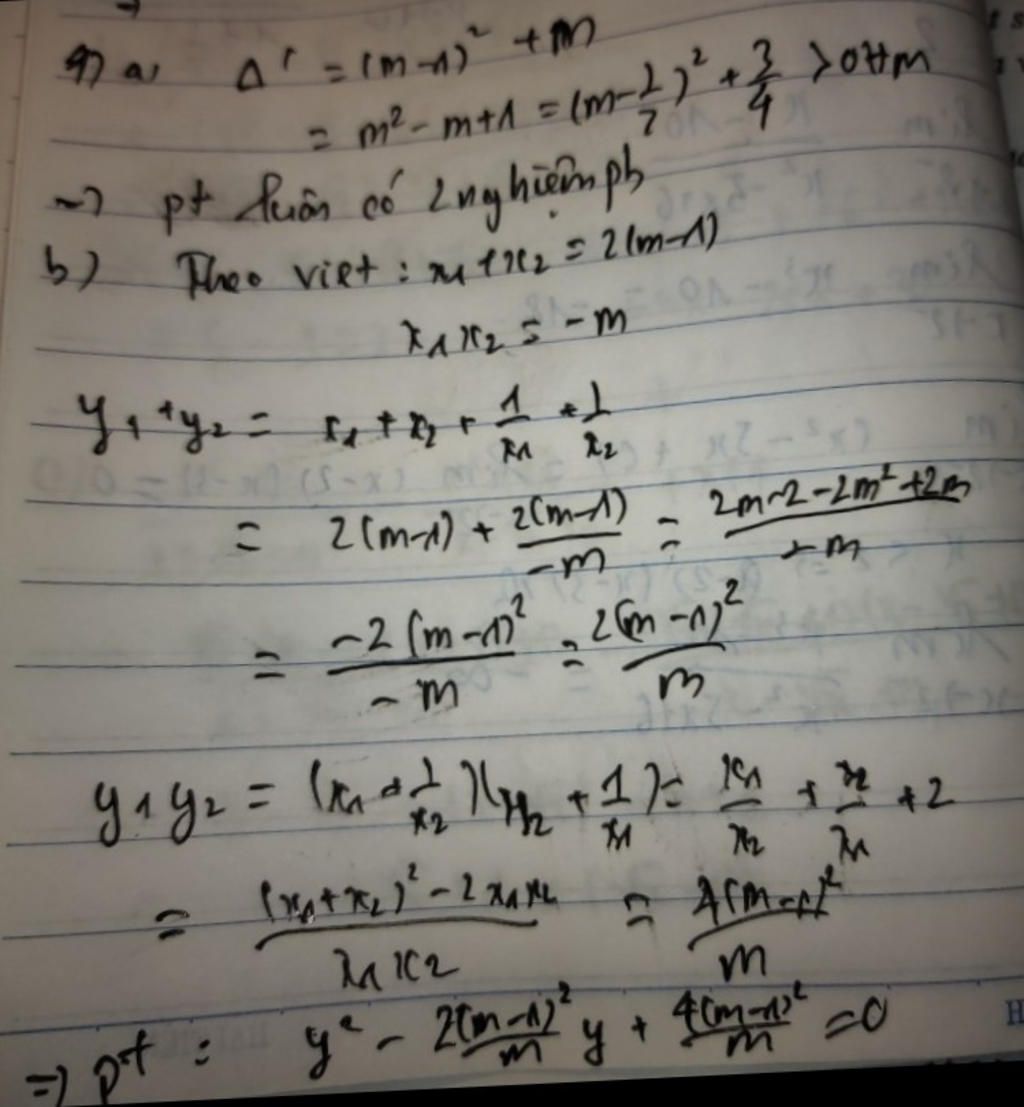 9) a, Δ' = (m-1)² + m
= m² - m + 1 = (m - 1/2)² + 3/4 > 0 ∀m
~> pt luôn có 2 nghiệm pb
b) Theo viet : x₁ + x₂ = 2(m-1)
x₁x₂ = -m
y₁ + y₂ = x₁ + x₂ + 1/x₁ + 1/x₂
= 2(m-1) + 2(m-1)/-m = 2m-2-2m²+2m/-m
= -2(m-1)²/-m = 2(m-1)²/m
y₁y₂ = (x₁ + 1/x₂)(x₂ + 1/x₁) = x₁/x₂ + x₂/x₁ + 2
= (x₁+x₂)² - 2x₁x₂/x₁x₂ = 4(m-1)²/m
=> pt : y² - 2(m-1)²/m y + 4(m-1)²/m = 0